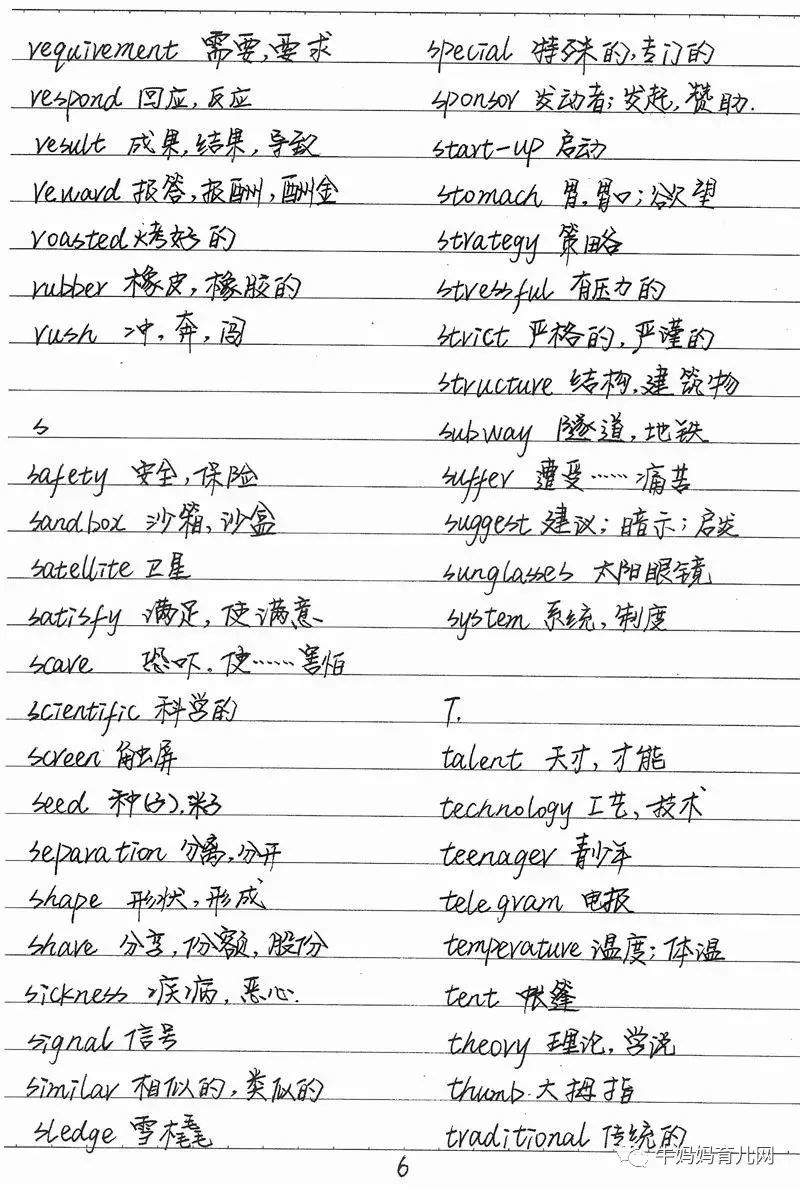 requirement 需要,要求
respond 回应,反应
result 成果,结果,导致
reward 报答,报酬,酬金
roasted 烤好的
rubber 橡皮,橡胶的
rush 冲,奔,闯
s
safety 安全,保险
sandbox 沙箱,沙盒
satellite 卫星
satisfy 满足,使满意
scare 恐吓,使……害怕
scientific 科学的
screen 触屏
seed 种(子),籽
separation 分离,分开
shape 形状,形成
share 分享,份额,股份
sickness 疾病,恶心
signal 信号
similar 相似的,类似的
sledge 雪橇
special 特殊的,专门的
sponsor 发动者;发起,赞助.
start-up 启动
stomach 胃,胃口;欲望
strategy 策略
stressful 有压力的
strict 严格的,严谨的
structure 结构,建筑物
subway 隧道,地铁
suffer 遭受……痛苦
suggest 建议;暗示;启发
sunglasses 太阳眼镜
system 系统,制度
T.
talent 天才,才能
technology 工艺,技术
teenager 青少年
telegram 电报
temperature 温度;体温
tent 帐篷
theory 理论,学说
thumb 大拇指
traditional 传统的
6
牛妈妈育儿网